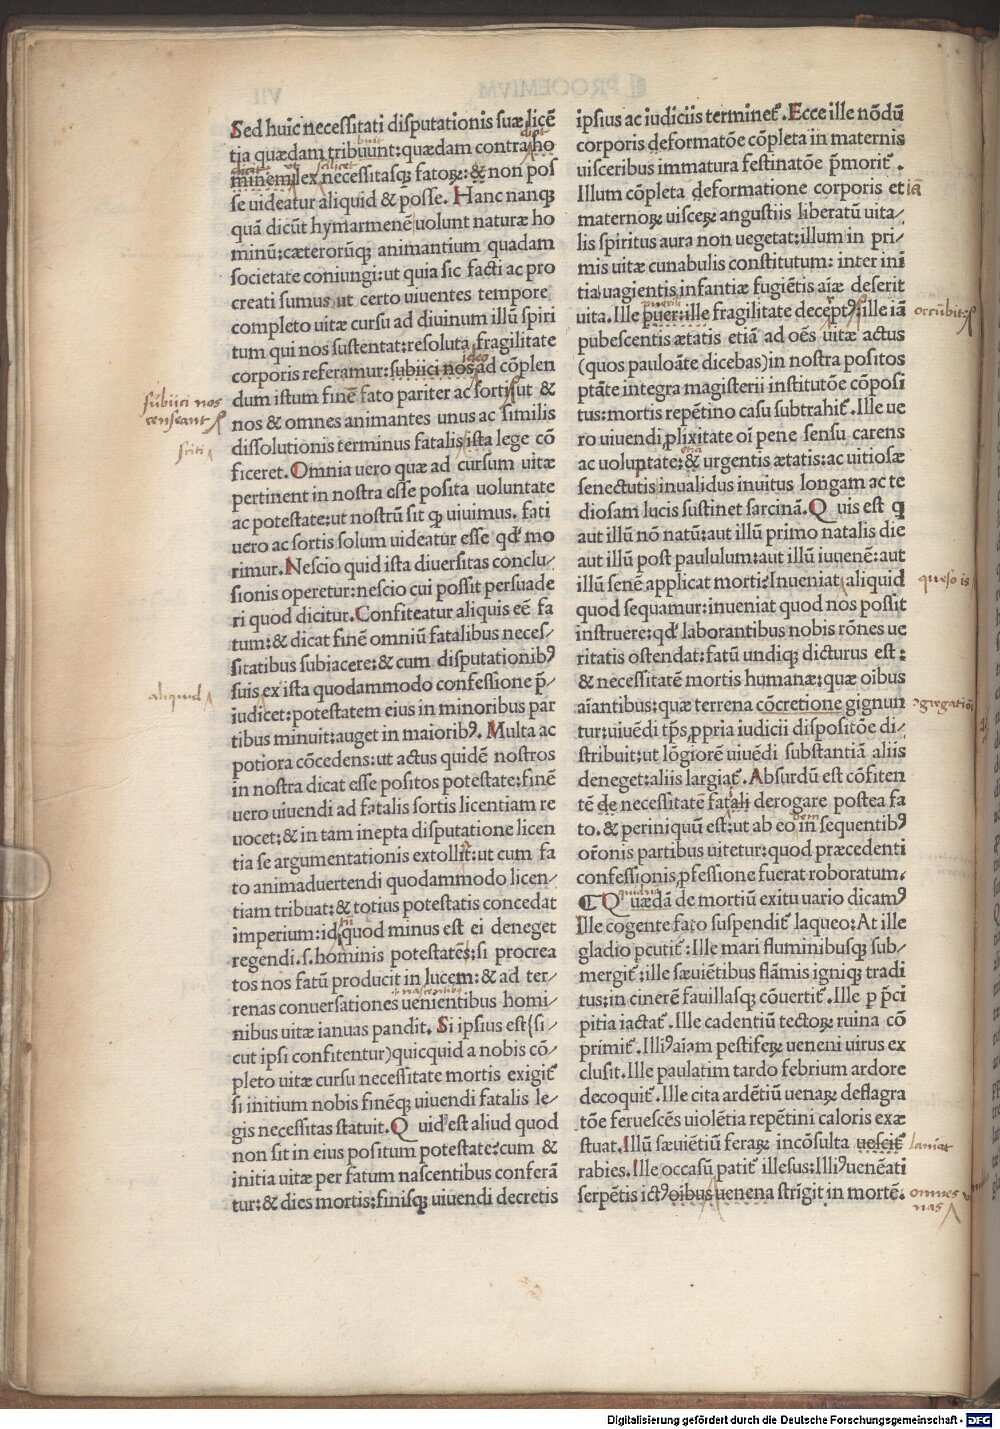 Sed huic necessitati disputationis suæ licẽ
tia quædam tribuunt: quædam contra ho
minem: lex necessitasq; fatoꝝ: & non pos
se uideatur aliquid & posse. Hanc nanq;
quã dicũt hymarmenẽ uolunt naturæ ho
minũ: cæterorũq; animantium quadam
societate coniungi: ut quia sic facti ac pro
creati sumus ut certo uiuentes tempore
completo uitæ cursu ad diuinum illũ spiri
tum qui nos sustentat: resoluta fragilitate
corporis referamur: subiici nos ad cõplen
dum istum finẽ fato pariter ac sorti ut &
nos & omnes animantes unus ac similis
dissolutionis terminus fatalis ista lege cõ
ficeret. Omnia uero quæ ad cursum uitæ
pertinent in nostra esse posita uoluntate
ac potestate: ut nostrũ sit ꝙ uiuimus. fati
uero ac sortis solum uideatur esse qd' mo
rimur. Nescio quid ista diuersitas conclu/
sionis operetur: nescio cui possit persuade
ri quod dicitur. Confiteatur aliquis eẽ fa
tum: & dicat finẽ omniũ fatalibus neces/
sitatibus subiacere: & cum disputationibꝰ
suis ex ista quodammodo confessione p̃/
iudicet: potestatem eius in minoribus par
tibus minuit: auget in maioribꝰ. Multa ac
potiora cõcedens: ut actus quidẽ nostros
in nostra dicat esse positos potestate: finẽ
uero uiuendi ad fatalis sortis licentiam re
uocet: & in tam inepta disputatione licen
tia se argumentationis extollit: ut cum fa
to animaduertendi quodammodo licen/
tiam tribuat: & totius potestatis concedat
imperium: id quod minus est ei deneget
regendi.s.hominis potestatẽ: si procrea
tos nos fatũ producit in lucem: & ad ter/
renas conuersationes uenientibus homi/
nibus uitæ ianuas pandit. Si ipsius est (si/
cut ipsi confitentur) quicquid a nobis cõ/
pleto uitæ cursu necessitate mortis exigit̃
si initium nobis finẽq; uiuendi fatalis le/
gis necessitas statuit. Quid est aliud quod
non sit in eius positum potestate: cum &
initia uitæ per fatum nascentibus conferã
tur: & dies mortis: finisq; uiuendi decretis
ipsius ac iudiciis terminet̃. Ecce ille nõdũ
corporis deformatõe cõpleta in maternis
uisceribus immatura festinatõe p̃morit̃.
Illum cõpleta deformatione corporis et iã
maternoꝝ uisceꝝ angustiis liberatũ uita/
lis spiritus aura non uegetat: illum in pri/
mis uitæ cunabulis constitutum: inter ini
tia uagientis infantiæ fugiẽtis aĩæ deserit
uita. Ille puer: ille fragilitate decept̃ꝰ: ille iã
pubescentis ætatis etiã ad oẽs uitæ actus
(quos pauloãte dicebas) in nostra positos
ptãte integra magisterii institutõe cõposi
tus: mortis repẽtino casu subtrahit̃. Ille ue
ro uiuendi ꝓlixitate oĩ pene sensu carens
ac uoluptate: & urgentis ætatis: ac uitiosæ
senectutis inualidus inuitus longam ac te
diosam lucis sustinet sarcinã. Quis est ꝗ
aut illũ nõ natũ: aut illũ primo natalis die
aut illũ post paululum: aut illũ iuuenẽ: aut
illũ senẽ applicat morti? Inueniat aliquid
quod sequamur: inueniat quod nos possit
instruere: qd' laborantibus nobis rõnes ue
ritatis ostendat: fatũ undiq; dicturus est:
& necessitatẽ mortis humanæ: quæ oĩbus
aĩantibus: quæ terrena cõcretione gignun
tur: uiuẽdi tp̃s ꝓpria iudicii dispositõe di/
stribuit: ut lõgiorẽ uiuẽdi substantiã aliis
deneget: aliis largiat̃. Absurdũ est cõfiten
tẽ de necessitatẽ fatali derogare postea fa
to. & periniquũ est: ut ab eo in sequentibꝰ
or̃onis partibus uitetur: quod præcedenti
confessionis ꝓfessione fuerat roboratum.
⁋ Quædã de mortiũ exitu uario dicamꝰ
Ille cogente fato suspendit̃ laqueo: At ille
gladio pcutit̃: Ille mari fluminibusq; sub/
mergit̃: ille sæuiẽtibus flãmis igniq; tradi
tus: in cinerẽ fauillasq; cõuertit̃. Ille p p̃ci
pitia iactat̃. Ille cadentiũ tectoꝝ ruina cõ
primit̃. Illiꝰ aĩam pestifeꝝ ueneni uirus ex
clusit. Ille paulatim tardo febrium ardore
decoquit̃. Ille cita ardẽtiũ uenaꝝ deflagra
tõe feruescẽs uiolẽtia repẽtini caloris exæ
stuat. Illũ sæuiẽtiũ feraꝝ incõsulta uescit̃
rabies. Ille occasũ patit̃ illesus: Illiꝰ uenẽati
serpẽtis ictꝰ oĩbus uenena strĩgit in mortẽ.
subiici nos
censeant
sciti
aliquid
occũbit
queso is
ↄgregatiõ
laniat
omnes
nas
Digitalisierung gefördert durch die Deutsche Forschungsgemeinschaft - DFG